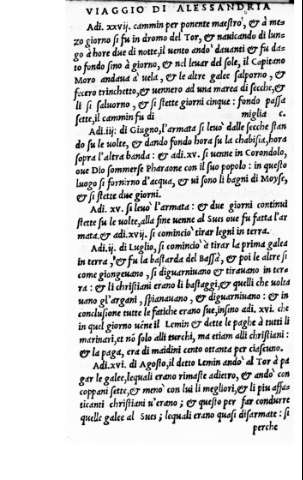 VIAGGIO DI ALESSANDRIA
Adi. xxvij. cammin per ponente maestro, & à me-
zo giorno si fu in dromo del Tor, & nauicando di lun-
go à hore due di notte, il uento andò dauanti & fu da-
to fondo sino à giorno, & nel leuar del sole, il Capitano
Moro andaua a uela, & le altre galee salporno, &
fecero trinchetto, & uennero ad una marea di secche, &
li si saluorno, & si stette giorni cinque: fondo passa
sette, il cammin fu di miglia c.
Adi. iij. di Giugno, l'armata si leuò dalle secche stan
do su le volte, & dando fondo hora su la chabisia, hora
sopra l'altra banda: & adi. xv. si uenne in Corondolo,
oue Dio sommerse Pharaone con il suo popolo: in questo
luogo si fornirno d'acqua, & ui sono li bagni di Moyse,
& si stette due giorni.
Adi. xv. si leuò l'armata: & due giorni continui
stette su le uolte, alla fine uenne al Sues oue fu fatta l'ar
mata, & adi. xvij. si cominciò tirar legni in terra.
Adi. ij. di Luglio, si cominciò à tirar la prima galea
in terra, & fu la bastarda del Bassà, & poi le altre si
come giongeuano, si diguarniuano & tirauano in ter-
ra: & li christiani erano li bastaggi, & quelli che uolta
uano gl'argani, spianauano, & diguarniuano: & in
conclusione tutte le fatiche erano sue, insino adi. xvi. che
in quel giorno uéne il Lemin & dette le paghe à tutti li
marinari, et nó solo alli turchi, ma etiam alli christiani:
& la paga, era di maidini cento ottanta per ciascuno.
Adi. xvi. di Agosto, il detto Lemin andò al Tor à pa
gar le galee, lequali erano rimaste adietro, & andò con
coppani sette, & menò con lui li megliori, & li piu affa-
ticanti christiani u'erano; & questo per far condurre
quelle galee al Sues; lequali erano quasi disarmate: si
perche